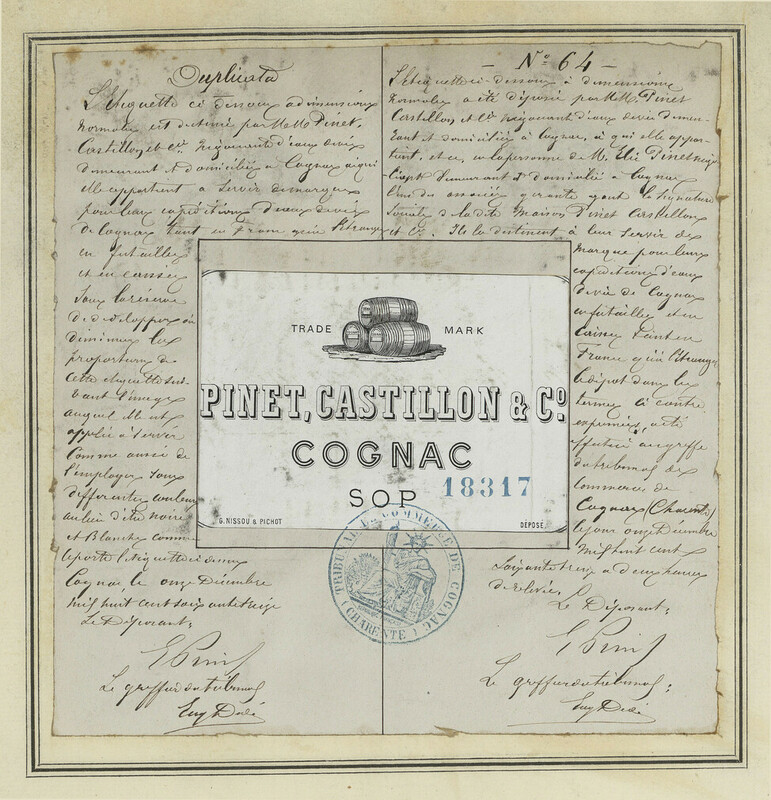 Duplicata
L'étiquette ci dessous à dimensions
normales est destinée par MM. Pinet,
Castillon et Cie Négociants d'eaux de vie
demeurant et domiciliés à Cognac à qui
elle appartient à servir de marque
pour leurs expéditions d'eaux de vie
de Cognac tant en France qu'à l'étranger
en futailles
et en caisses
sous la réserve
de développer ou
diminuer les
proportions de
cette étiquette sui-
vant l'usage
auquel il est
appliqué à servir
comme aussi de
l'employer sous
différentes couleurs
au lieu d'être noire
et Blanche comme
le porte l'étiquette ci dessus
Cognac, le onze Décembre
mil huit cent soixante treize
Le Déposant:
E Pinet
Le greffier du tribunal
Eug Dédé
- No 64 -
L'étiquette ci-dessous à dimensions
normales a été déposée par MM. Pinet
Castillon et Cie Négociants d'eaux de vie demeu-
rant et domiciliés à Cognac, à qui elle appar-
tient, et ce, en la personne de M. Elie Pinet négo-
ciant demeurant et domicilié à Cognac
l'un des associés gérants ayant la signature
sociale de la dite Maison Pinet Castillon
et Cie. Ils la destinent à leur servir de
marque pour leurs
expéditions d'eaux
de vie de Cognac
en futailles et en
caisses tant en
France qu'à l'étranger
le dépôt dans les
termes ci contre
exprimés, a été
effectué au greffe
du tribunal de
commerce de
Cognac (Charente)
le jour onze Décembre
mil huit cent
soixante treize à deux heures
de relevée.
Le Déposant:
E Pinet
Le greffier du tribunal:
Eug Dédé
TRADE MARK
PINET, CASTILLON & Co.
COGNAC
SOP
18317
G. NISSOU & PICHOT
DEPOSÉ
TRIBUNAL DE COMMERCE DE COGNAC
(CHARENTE)